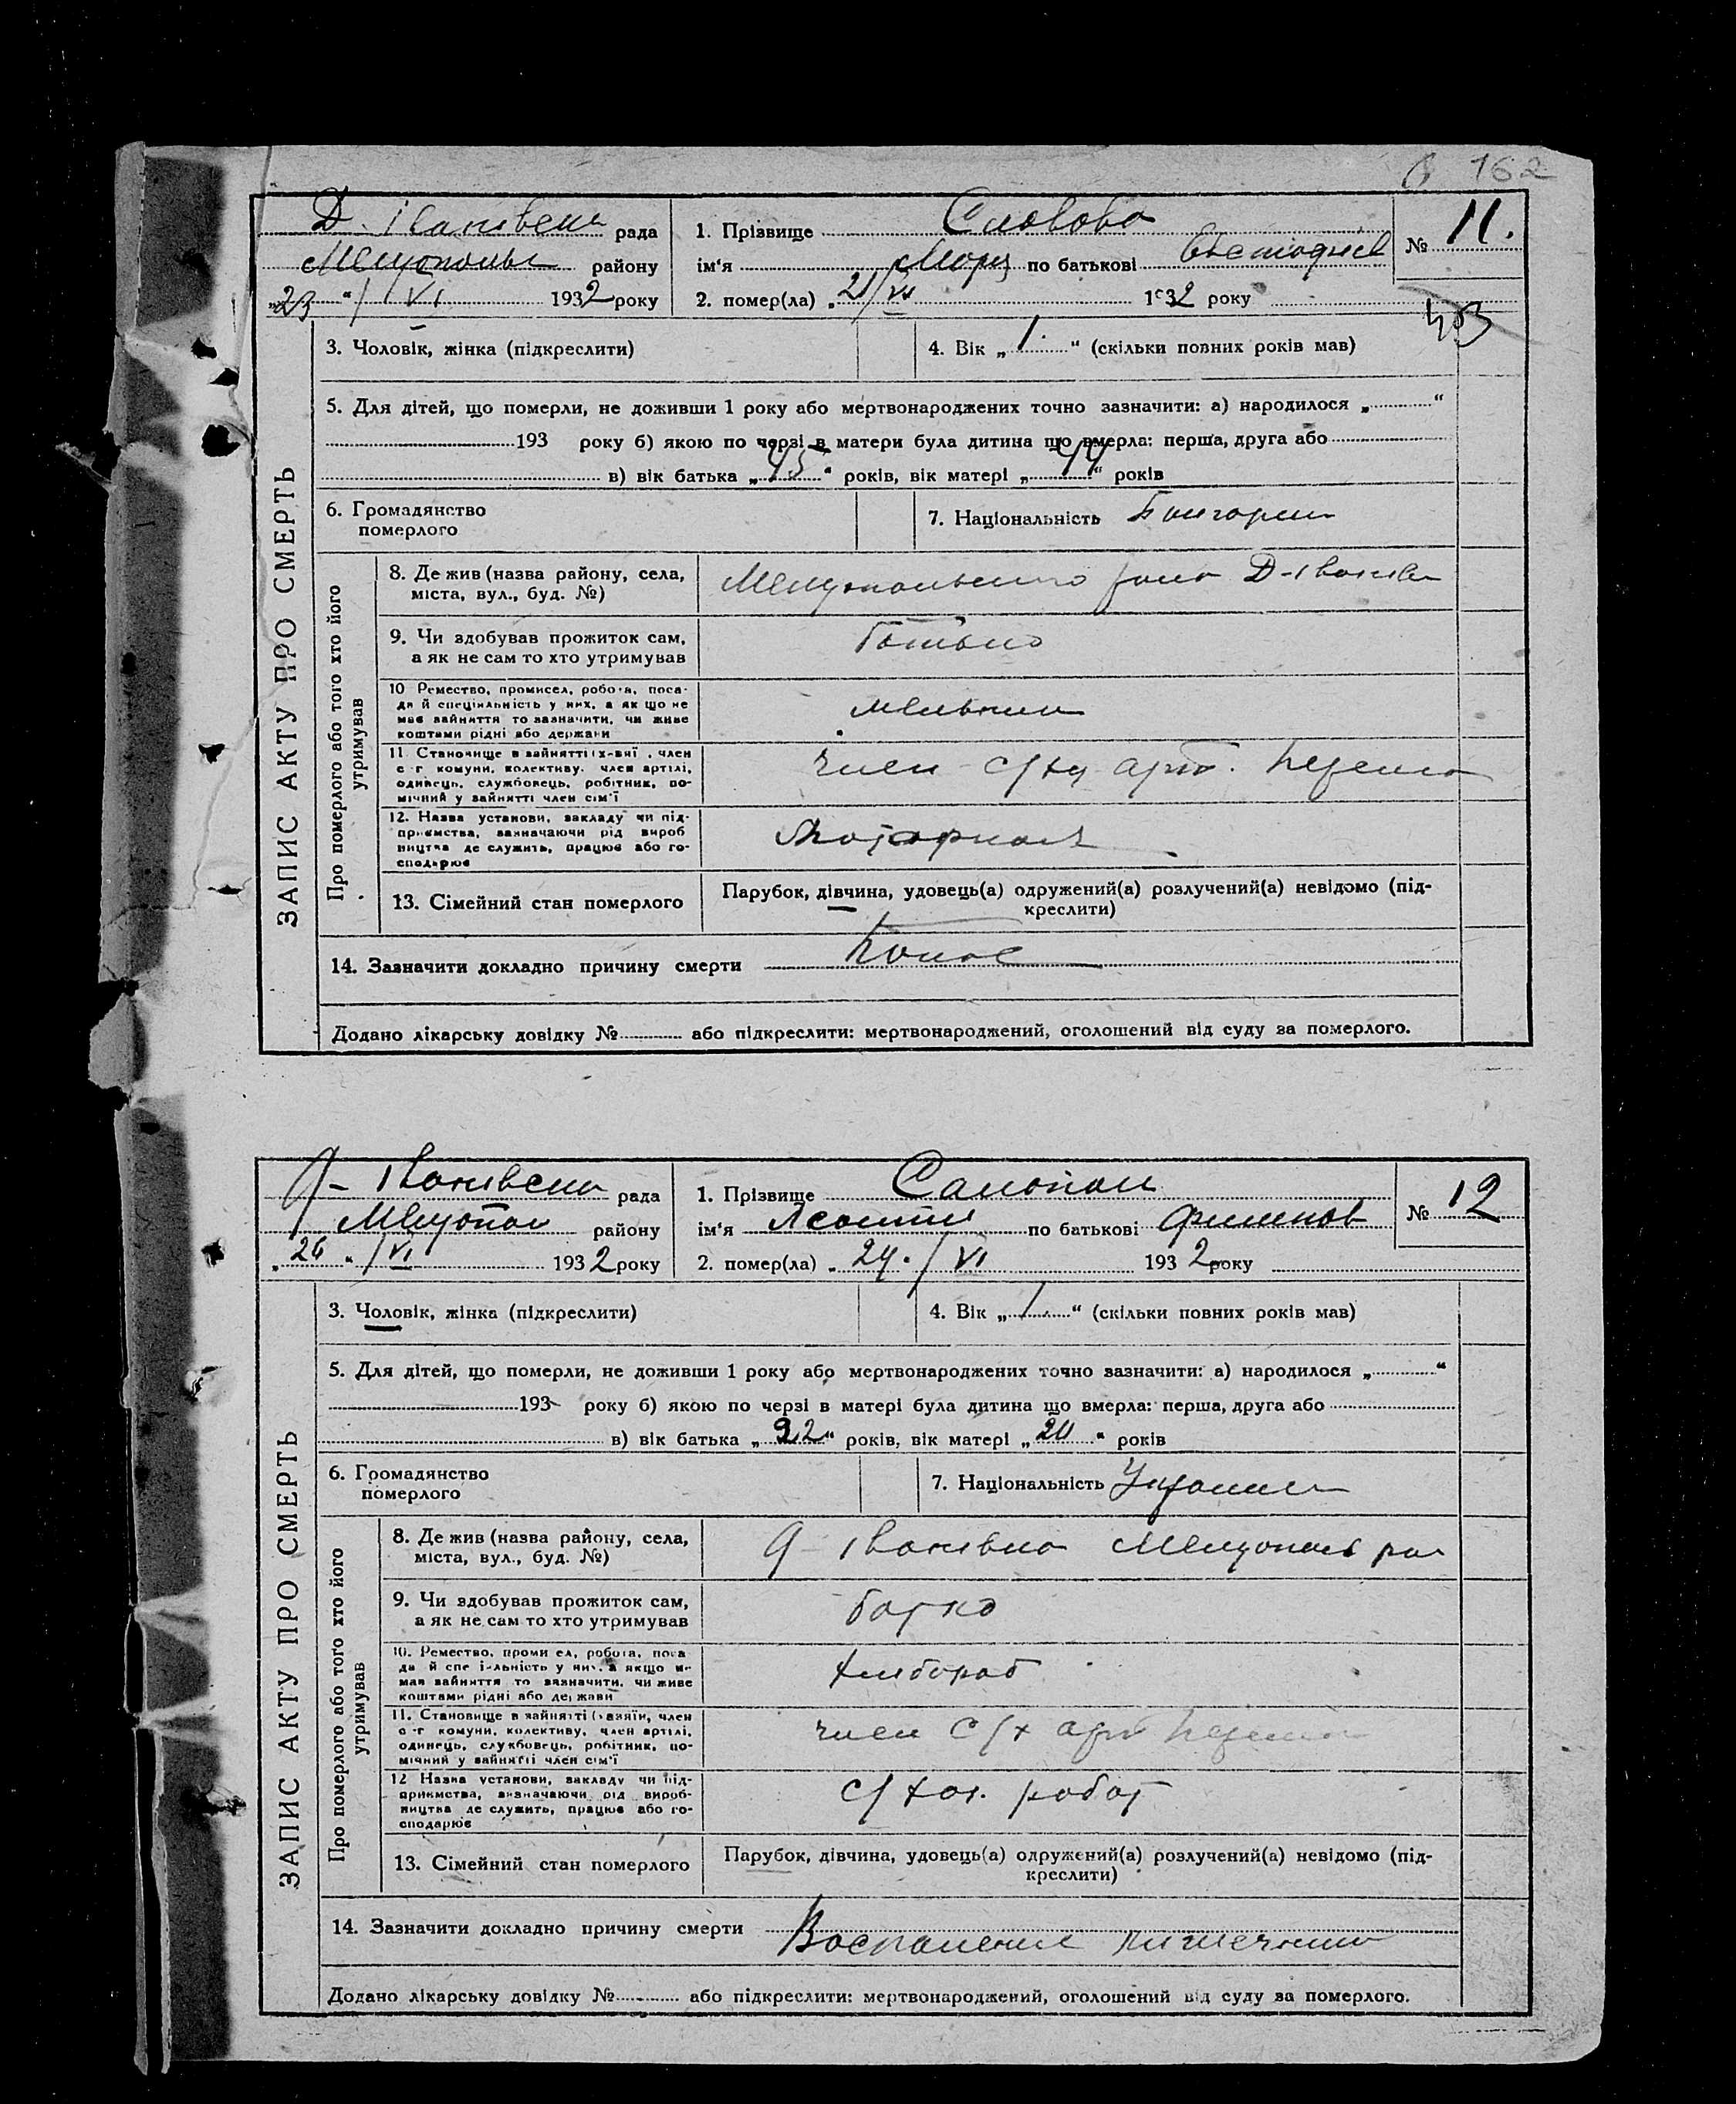 162
Д-Іванівськ рада
Мелітопольс району
„23“ / VI 1932 року
1. Прізвище
ім'я по батькові
2. помер(ла) „21/VI 1932 року
№ 11.
403
ЗАПИС АКТУ ПРО СМЕРТЬ
3. Чоловік, жінка (підкреслити)
4. Вік „1.“ (скільки повних років мав)
5. Для дітей, що померли, не доживши 1 року або мертвонароджених точно зазначити: а) народилося „ “
193 року б) якою по черзі в матери була дитина що вмерла: перша, друга або
в) вік батька „45“ років, вік матері „44“ років
6. Громадянство
померлого
7. Національність Болгарин
Про померлого або того хто його
утримував
8. Де жив (назва району, села,
міста, вул., буд. №)
Мелітопольского Д-Іванів
9. Чи здобував прожиток сам,
а як не сам то хто утримував
батько
10 Ремество, промисел, робота, поса-
да й спеціяльність у них, а як що не
має зайняття то зазначити, чи живе
коштами рідні або держави
мельник
11. Становище в зайнятті (х-вні, член
с-г комуни, колективу, член артілі,
одинець, службовець, робітник, по-
мічний у зайнятті член сім'ї
член с/х арт.
12. Назва установи, закладу чи під-
приємства, зазначаючи рід вироб
ництва де служить, працює або го-
сподарює
13. Сімейний стан померлого
Парубок, дівчина, удовець(а) одружений(а) розлучений(а) невідомо (під-
креслити)
14. Зазначити докладно причину смерти
Додано лікарську довідку № або підкреслити: мертвонароджений, оголошений від суду за померлого.
Д-Іванівськ рада
Мелітопол району
„26“ / VI 1932 року
1. Прізвище
ім'я по батькові Филипов
2. помер(ла) „24. / VI 1932 року
№ 12
ЗАПИС АКТУ ПРО СМЕРТЬ
3. Чоловік, жінка (підкреслити)
4. Вік „1.“ (скільки повних років мав)
5. Для дітей, що померли, не доживши 1 року або мертвонароджених точно зазначити: а) народилося „ “
193 року б) якою по черзі в матері була дитина що вмерла: перша, друга або
в) вік батька „22“ років, вік матері „ “ років
6. Громадянство
померлого
7. Національність
Про померлого або того хто його
утримував
8. Де жив (назва району, села,
міста, вул., буд. №)
Д-Іванівка Мелітополь рай
9. Чи здобував прожиток сам,
а як не сам то хто утримував
батко
10. Ремество, промисел, робота, поса
да й спеціяльність у них, а якщо не
має зайняття то зазначити, чи живе
коштами рідні або держави
хлібороб
11. Становище в зайнятті (хазяїн, член
с-г комуни, колективу, член артілі,
одинець, службовець, робітник, по-
мічний у зайнятті член сім'ї
член с/х арт
12 Назва установи, закладу чи під-
приємства, зазначаючи рід вироб-
ництва де служить, працює або го-
сподарює
с/хоз. робот
13. Сімейний стан померлого
Парубок, дівчина, удовець(а) одружений(а) розлучений(а) невідомо (під-
креслити)
14. Зазначити докладно причину смерти
Воспаление кишечника
Додано лікарську довідку № або підкреслити: мертвонароджений, оголошений від суду за померлого.